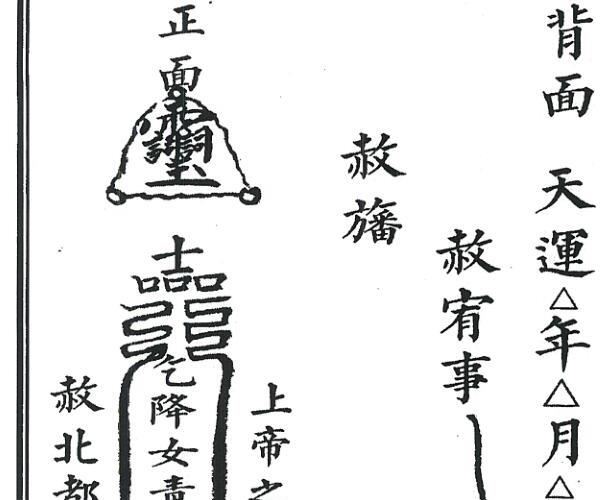 背面　天運△年△月△
赦宥事
赦旛
上帝之
正面
乞降女青
赦北都